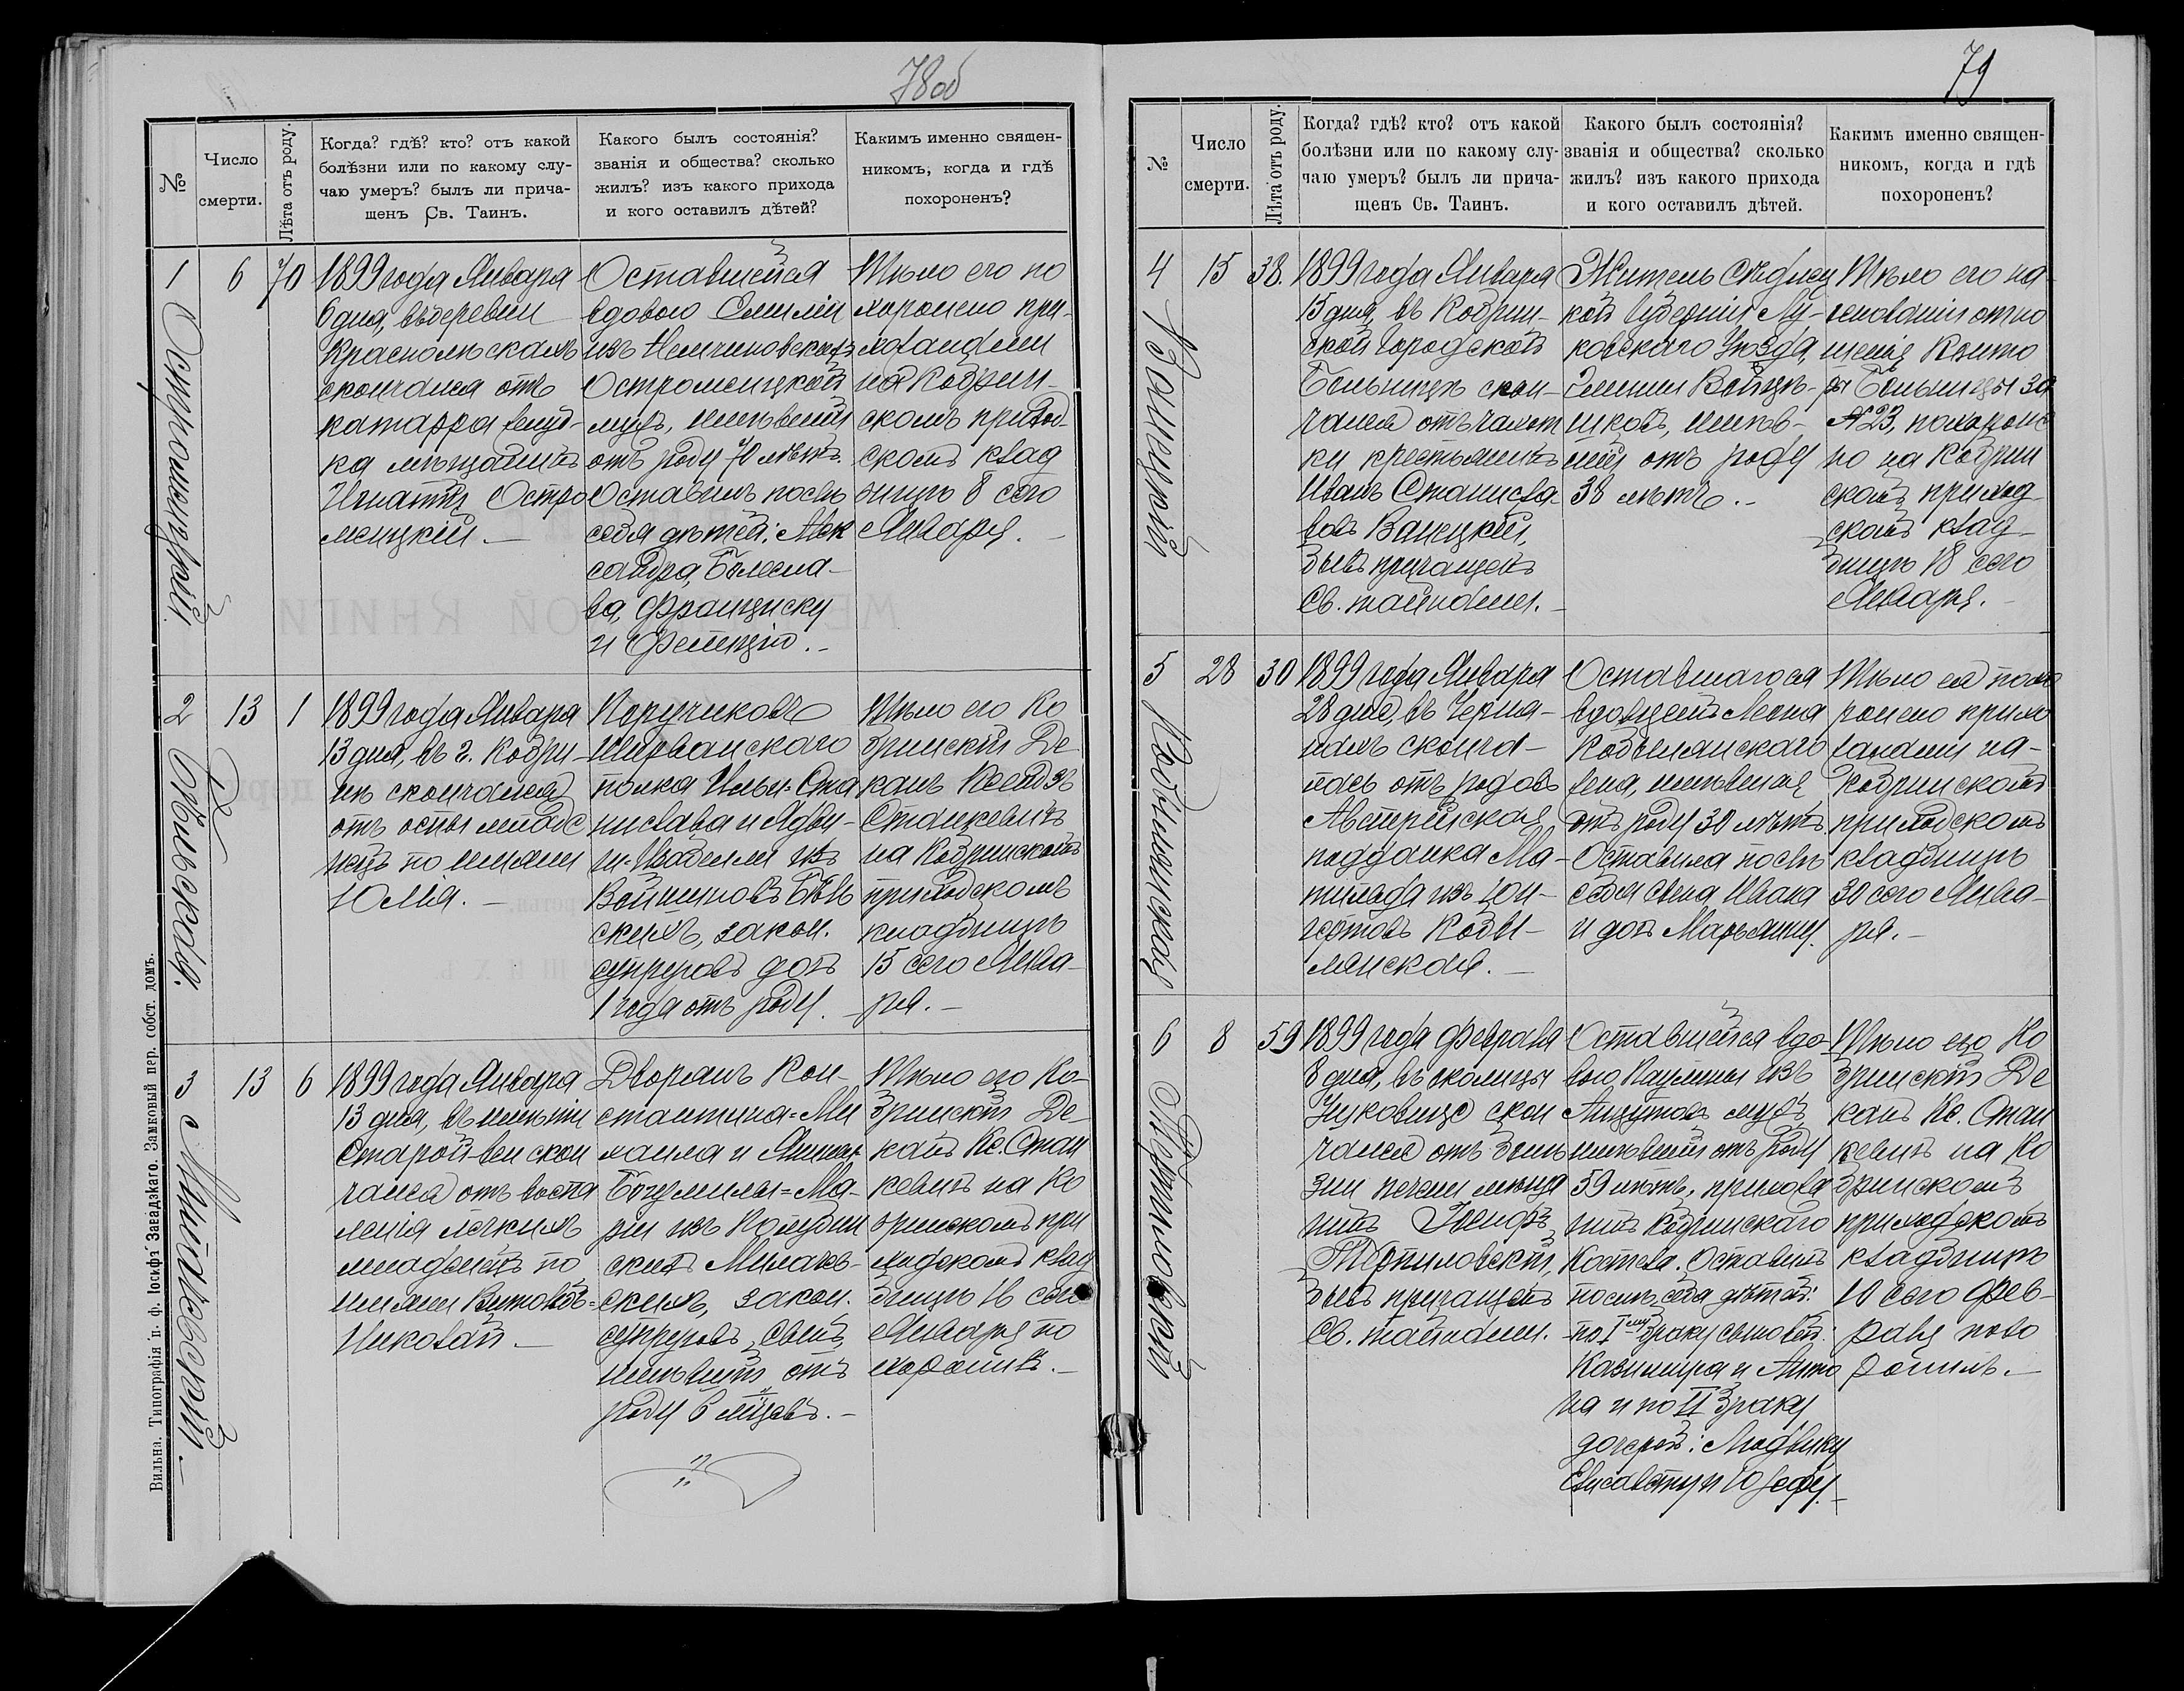 78об
№
Число
смерти.
Лѣта отъ роду.
Когда? гдѣ? кто? отъ какой
болѣзни или по какому слу-
чаю умеръ? былъ ли прича-
щенъ Св. Таинъ.
Какого былъ состоянія?
званія и общества? сколько
жилъ? изъ какого прихода
и кого оставилъ дѣтей?
Какимъ именно священ-
никомъ, когда и гдѣ
похороненъ?
1
Остромецкій
6
70
1899 года Января
6 дня, въ деревни
скончался отъ
катарра желуд-
ка мѣщанинъ
Игнатій Остро
мецкій. —
Оставшейся
вдовою Эмиліи
изъ Немчиновскихъ
Остромецкой
мужъ, имѣвшій
отъ роду 70 лѣтъ.
Оставилъ послѣ
себя дѣтей: Алек
сандра, Болесла-
ва, Франциску
и Фелицію. -
Тѣло его по
хоронено при-
хожанами
на Кобрин-
скомъ приход-
скомъ клад
бищѣ 8 сего
Января. -
2
Бѣльская.
13
1
1899 года Января
13 дня, въ г. Кобри-
нѣ скончалась
отъ оспы младе
нецъ по имени
Юлія. -
Поручиковъ
Ширванскаго
полка Ильи-Ста
нислава и Ядви-
ги-Изабеллы изъ
Бѣль
скихъ, закон.
супруговъ дочь
1 года отъ роду. -
Тѣло его Ко
бринскій Де
канъ Ксендзъ
Станкевичъ
на Кобринскомъ
приходскомъ
кладбищѣ
15 сего Янва-
ря. -
3
Милачевскій. -
13
6
1899 года Января
13 дня, въ имѣніи
скон
чался отъ воспа
ленія легкихъ
младенецъ по
имени Витольдъ=
Николай. -
Дворянъ Кон-
стантина=Ми
хаила и
Богумилы=Ма-
ріи изъ
скихъ Милачев-
скихъ, закон.
супруговъ, сынъ,
имѣвшій отъ
роду 6 мѣсяцевъ. -
Тѣло его Ко-
бринскій Де-
канъ Кс. Стан
кевичъ на Ко
бринскомъ при
ходскомъ клад
бищѣ 16 сего
Января по
хоронилъ. -
Вильна. Типографія п. ф. Іосифа Завадзкаго. Замковый пер. собст. домъ.
79
№
Число
смерти.
Лѣта отъ роду.
Когда? гдѣ? кто? отъ какой
болѣзни или по какому слу-
чаю умеръ? былъ ли прича-
щенъ Св. Таинъ.
Какого былъ состоянія?
званія и общества? сколько
жилъ? изъ какого прихода
и кого оставилъ дѣтей.
Какимъ именно священ-
никомъ, когда и гдѣ
похороненъ?
4
Ваницкій
15
38.
1899 года Января
15 дня, въ Кобрин-
ской Городской
Больницѣ скон-
чался отъ чахот
ки крестьянинъ
Иванъ Станисла
вовъ Ваницкій,
бывъ причащенъ
Св. тайнами. -
Житель Сѣдлец
кой Губерніи Лу-
ковскаго Уѣзда,
Гмины Войцѣ-
шковъ, имѣв-
шій отъ роду
38 лѣтъ. -
Тѣло его на
основаніи отно
шенія Конто
ры Больницы за
№ 23, похороне
но на Кобрин
скомъ приход
скомъ клад-
бищѣ 18 сего
Января. -
5
Кобылянская
28
30
1899 года Января
28 дня, въ Черня-
нахъ сконча-
лась отъ родовъ
Австрійская
подданка Ма-
тильда изъ
Кобы-
лянская. -
Оставшагося
вдовцемъ Леона
Кобылянскаго
жена, имѣвшая
отъ роду 30 лѣтъ.
Оставила послѣ
себя сына Ивана
и дочь Марьянну.
Тѣло ея похо
ронено прихо
жанами на-
Кобринскомъ
приходскомъ
кладбищѣ
30 сего Янва-
ря. -
6
Терпиловскій
8
59
1899 года Февраля
8 дня, въ околицы
скон
чался отъ болѣ
зни печени мѣща
нинъ Іосифъ
Терпиловскій,
бывъ причащенъ
Св. тайнами.
Оставшейся вдо-
вою Паулины изъ
мужъ,
имѣвшій отъ роду
59 лѣтъ, прихожа
нинъ Кобринскаго
Костела. Оставилъ
послѣ себя дѣтей:
по I-му браку сыновей:
Казимира и Анто
на и по II браку
дочерей: Людвику
Елисавету и Юзефу. -
Тѣло его Ко
бринскій Де
канъ Кс. Стан
кевичъ на Ко
бринскомъ
приходскомъ
кладбищѣ
10 сего Фев-
раля похо
ронилъ. -